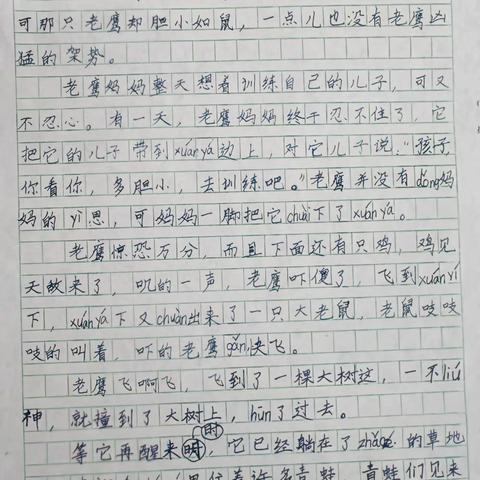 可那只老鹰却胆小如鼠，一点儿也没有老鹰凶
猛的架势。
老鹰妈妈整天想着训练自己的儿子，可又
不忍心。有一天，老鹰妈妈终于忍不住了，它
把它的儿子带到xuányá边上，对它儿子说：“孩子
你看你，多胆小，去训练吧。”老鹰并没有dǒng妈
妈的yì思，可妈妈一脚把它chuài下了xuányá。
老鹰惊恐万分，而且下面还有只鸡，鸡见
天敌来了，叽的一声，老鹰吓傻了，飞到xuányá
下，xuányá下又chuàn出来了一只大老鼠，老鼠吱吱
吱的叫着，吓的老鹰gǎn快飞。
老鹰飞啊飞，飞到了一棵大树这，一不liú
神，就撞到了大树上，hūn了过去。
等它再醒来时，它已经躺在了zhǎozé的草地
里住着许多青蛙，青蛙们见来